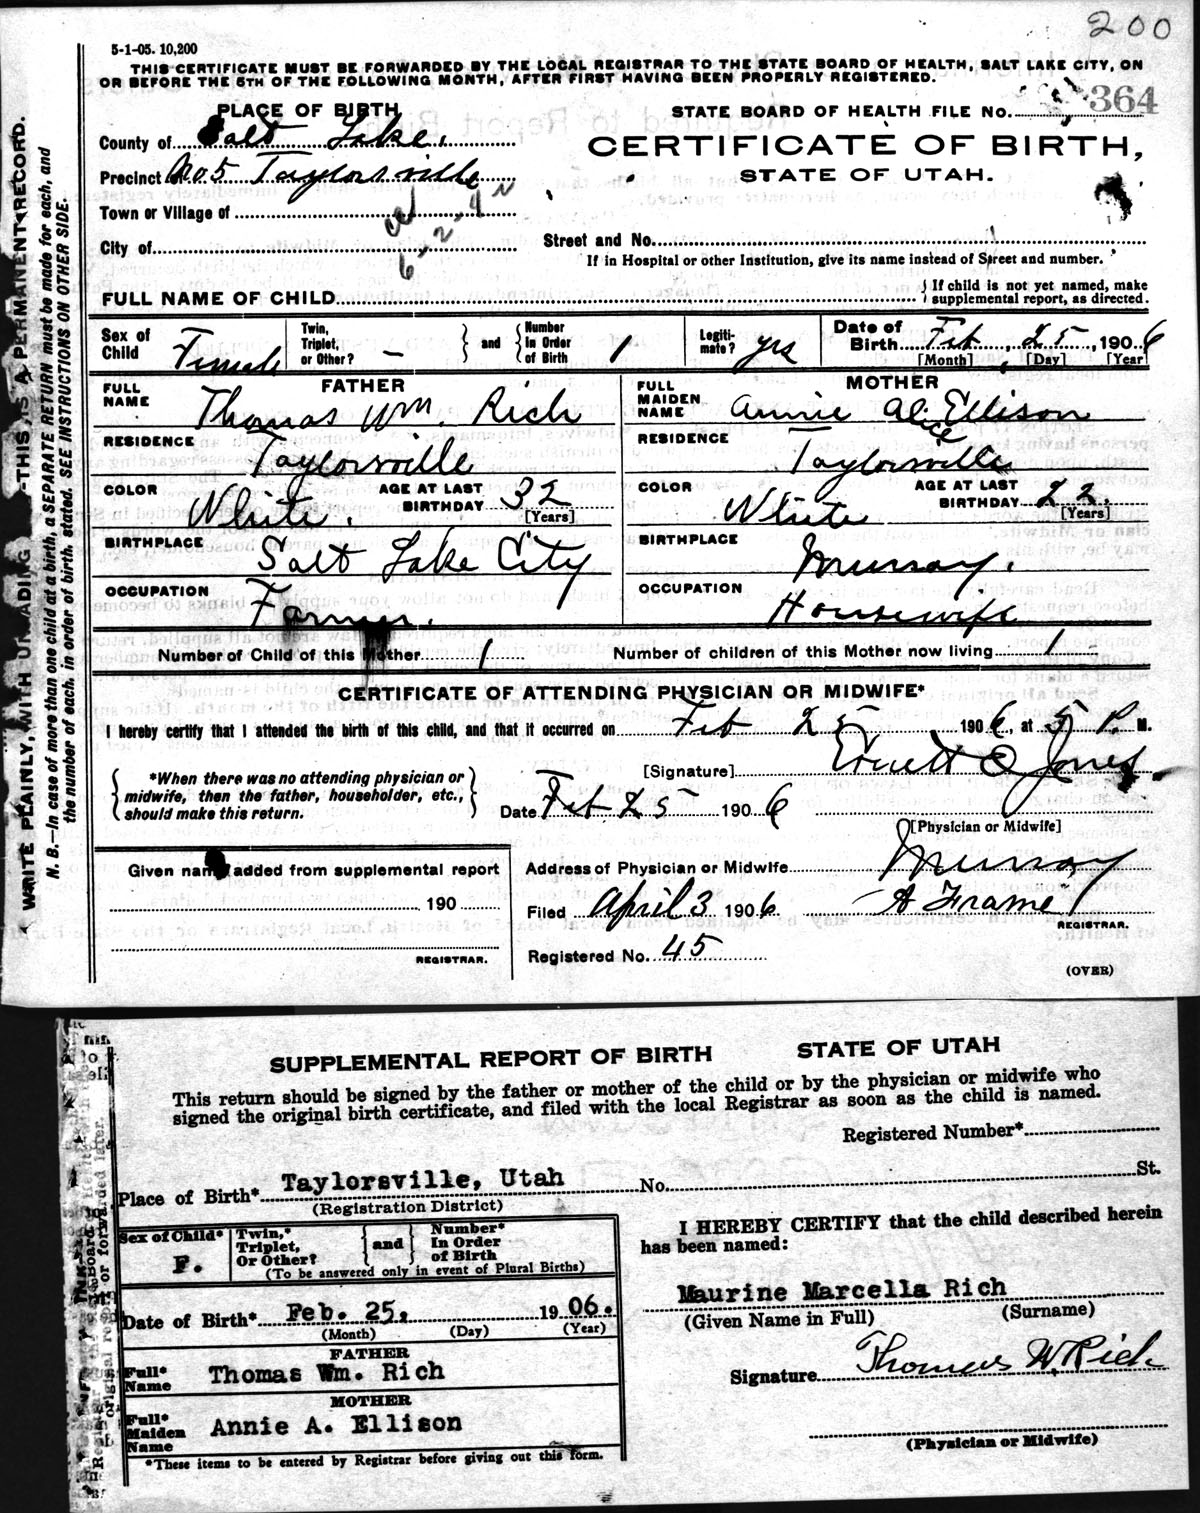 200
5-1-05. 10,200
THIS CERTIFICATE MUST BE FORWARDED BY THE LOCAL REGISTRAR TO THE STATE BOARD OF HEALTH, SALT LAKE CITY, ON
OR BEFORE THE 5TH OF THE FOLLOWING MONTH, AFTER FIRST HAVING BEEN PROPERLY REGISTERED.
PLACE OF BIRTH
County of Salt Lake.
Precinct of No 5 Taylorsville
Town or Village of
City of
STATE BOARD OF HEALTH FILE No. 364
CERTIFICATE OF BIRTH,
STATE OF UTAH.
Street and No.
If in Hospital or other Institution, give its name instead of Street and number.
FULL NAME OF CHILD
{ If child is not yet named, make
supplemental report, as directed.
Sex of Child Female
Twin, Triplet, or Other? —
and
Number in Order of Birth 1
Legitimate? yes
Date of Birth Feb 25 1906
[Month] [Day] [Year]
FATHER
FULL NAME Thomas Wm. Rich
RESIDENCE Taylorsville
COLOR White. AGE AT LAST BIRTHDAY 32 [Years]
BIRTHPLACE Salt Lake City
OCCUPATION Farmer.
MOTHER
FULL MAIDEN NAME Annie Alice Ellison
RESIDENCE Taylorsville
COLOR White AGE AT LAST BIRTHDAY 22. [Years]
BIRTHPLACE Murray.
OCCUPATION Housewife
Number of Child of this Mother 1 Number of children of this Mother now living 1
CERTIFICATE OF ATTENDING PHYSICIAN OR MIDWIFE*
I hereby certify that I attended the birth of this child, and that it occurred on Feb 25 1906, at 5 P. M.
*When there was no attending physician or
midwife, then the father, householder, etc.,
should make this return.
[Signature] Jones.
Date Feb 25 1906
[Physician or Midwife]
Given name added from supplemental report
190
REGISTRAR.
Address of Physician or Midwife Murray
Filed April 3 1906 A Frame
REGISTRAR.
Registered No. 45
(OVER)
WRITE PLAINLY, WITH UNFADING -THIS IS A PERMANENT RECORD.
N. B.—In case of more than one child at a birth, a SEPARATE RETURN must be made for each, and
the number of each, in order of birth, stated. SEE INSTRUCTIONS ON OTHER SIDE.
SUPPLEMENTAL REPORT OF BIRTH STATE OF UTAH
This return should be signed by the father or mother of the child or by the physician or midwife who
signed the original birth certificate, and filed with the local Registrar as soon as the child is named.
Registered Number*
Place of Birth* Taylorsville, Utah No. St.
(Registration District)
Sex of Child* F.
Twin,* Triplet, Or Other?
and
Number* In Order of Birth
(To be answered only in event of Plural Births)
Date of Birth* Feb. 25, 1906.
(Month) (Day) (Year)
FATHER
Full* Name Thomas Wm. Rich
MOTHER
Full* Maiden Name Annie A. Ellison
*These items to be entered by Registrar before giving out this form.
I HEREBY CERTIFY that the child described herein
has been named:
Maurine Marcella Rich
(Given Name in Full) (Surname)
Signature Thomas W. Rich
(Physician or Midwife)